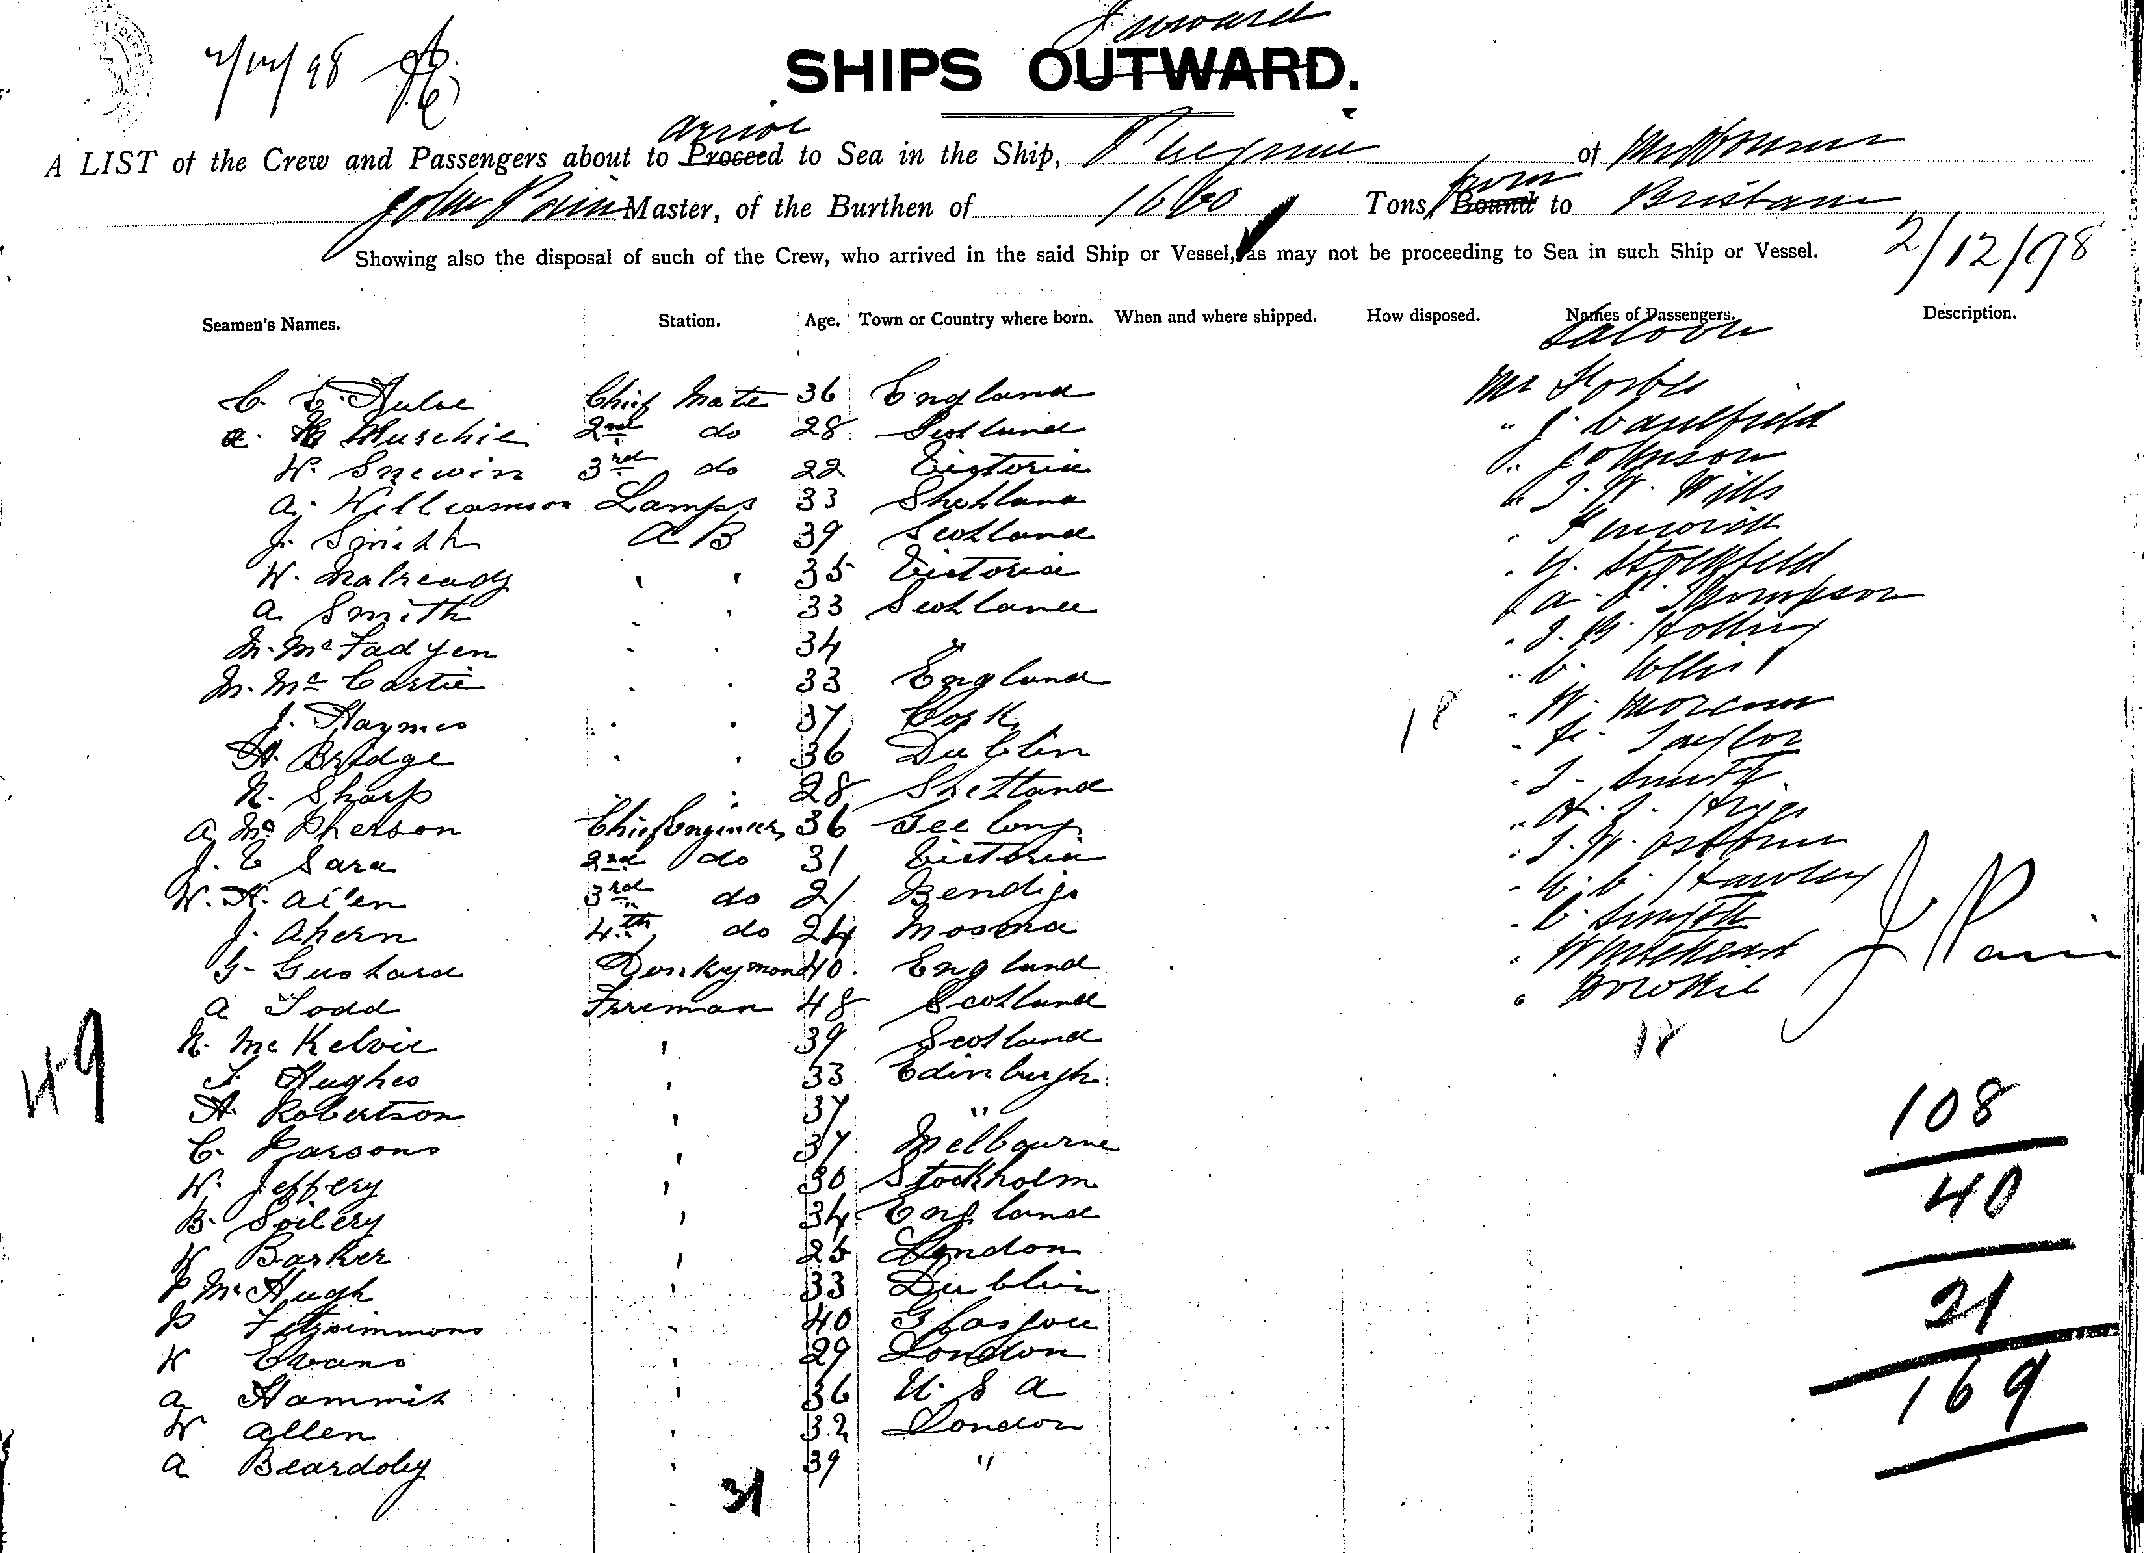 Inward
2/12/98
SHIPS OUTWARD.
arrive
A LIST of the Crew and Passengers about to Proceed to Sea in the Ship, of Melbourne
from
John Pain Master, of the Burthen of 1660 Tons, Bound to Brisbane
Showing also the disposal of such of the Crew, who arrived in the said Ship or Vessel, as may not be proceeding to Sea in such Ship or Vessel.
2/12/98
Seamen's Names. Station. Age. Town or Country where born. When and where shipped. How disposed. Names of Passengers. Description.
Saloon
C. E. Hulse Chief Mate 36 England
a. Murchie 2nd do 28 Scotland
W. Snewin 3rd do 22 Victoria
a. Williamson Lamps 33 Shetland
J. Smith A B 39 Scotland
W. Malready " " 35 Victoria
a. Smith " " 33 Scotland
N. McFadyen " " 34 "
M. McCartie " " 33 England
J. Haymes " " 37 Cork
H. Bridge " " 36 Dublin
N. Sharp " " 28 Shetland
a. McPherson Chief Engineer 36 Geelong
J. E Sara 2nd do 31 Victoria
W. H. Allen 3rd do 21 Bendigo
J. Ahern 4th do 24 Mosma
G. Gushard Donkeyman 40. England
a Todd Fireman 48 Scotland
N. McKelvie " 39 Scotland
T. Hughes " 33 Edinburgh
H. Robertson " 37 "
C. Parsons " 37 Melbourne
W. Jeffery " 30 Stockholm
B. Spilery " 34 England
W Barker " 25 London
P McHugh " 33 Dublin
P Fitzsimmons " 40 Glasgow
W Evans " 29 London
a Hammit " 36 U. S a
W allen " 32 London
a Beardoley " 39 "
31
49
Mr Forbes
" J. Caulfield
" Johnson
" J. W. Wills
" Fenwick
" G. Stockfeld
" a. Thompson
" C. Ollis
" W. Morean
" Taylor
" J. Smith
" H. J. Higgs
" J. W. Osborne
" C. C. Hawley
" C. Smyth
" Whitehead
" Browne
18
18
J Pain
108
40
21
169